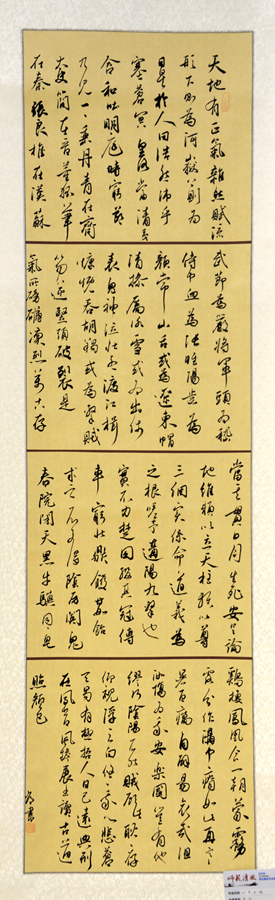 天地有正氣雜然賦流
形下則為河嶽上則為
日星於人曰浩然沛乎
塞蒼冥皇路當清夷
含和吐明庭時窮節
乃見一一垂丹青在齊
太史簡在晉董狐筆
在秦張良椎在漢蘇
武節為嚴將軍頭為嵇
侍中血為張睢陽齒為
顏常山舌或為遼東帽
清操厲冰雪或為出師
表鬼神泣壯烈渡江楫
慷慨吞胡羯或為擊賊
笏逆豎頭破裂是
氣所磅礴凜烈萬古存
當其貫日月生死安足論
地維賴以立天柱賴以尊
三綱實係命道義為
之根嗟予遘陽九隸也
實不力楚囚纓其冠傳
車窮北鼎鑊甘飴
求之不可得陰房闃鬼
春院閟天黑牛驥同一皂
雞棲鳳凰食一朝蒙霧
露分作溝中瘠如此再寒
暑百癘自辟易哀哉沮
洳場為我安樂國豈有他
繆巧陰陽不能賊顧此耿存
仰視浮雲白悠悠我心悲蒼
天曷有極哲人日已遠典刑
在夙昔風簷展書讀古道
照顏色